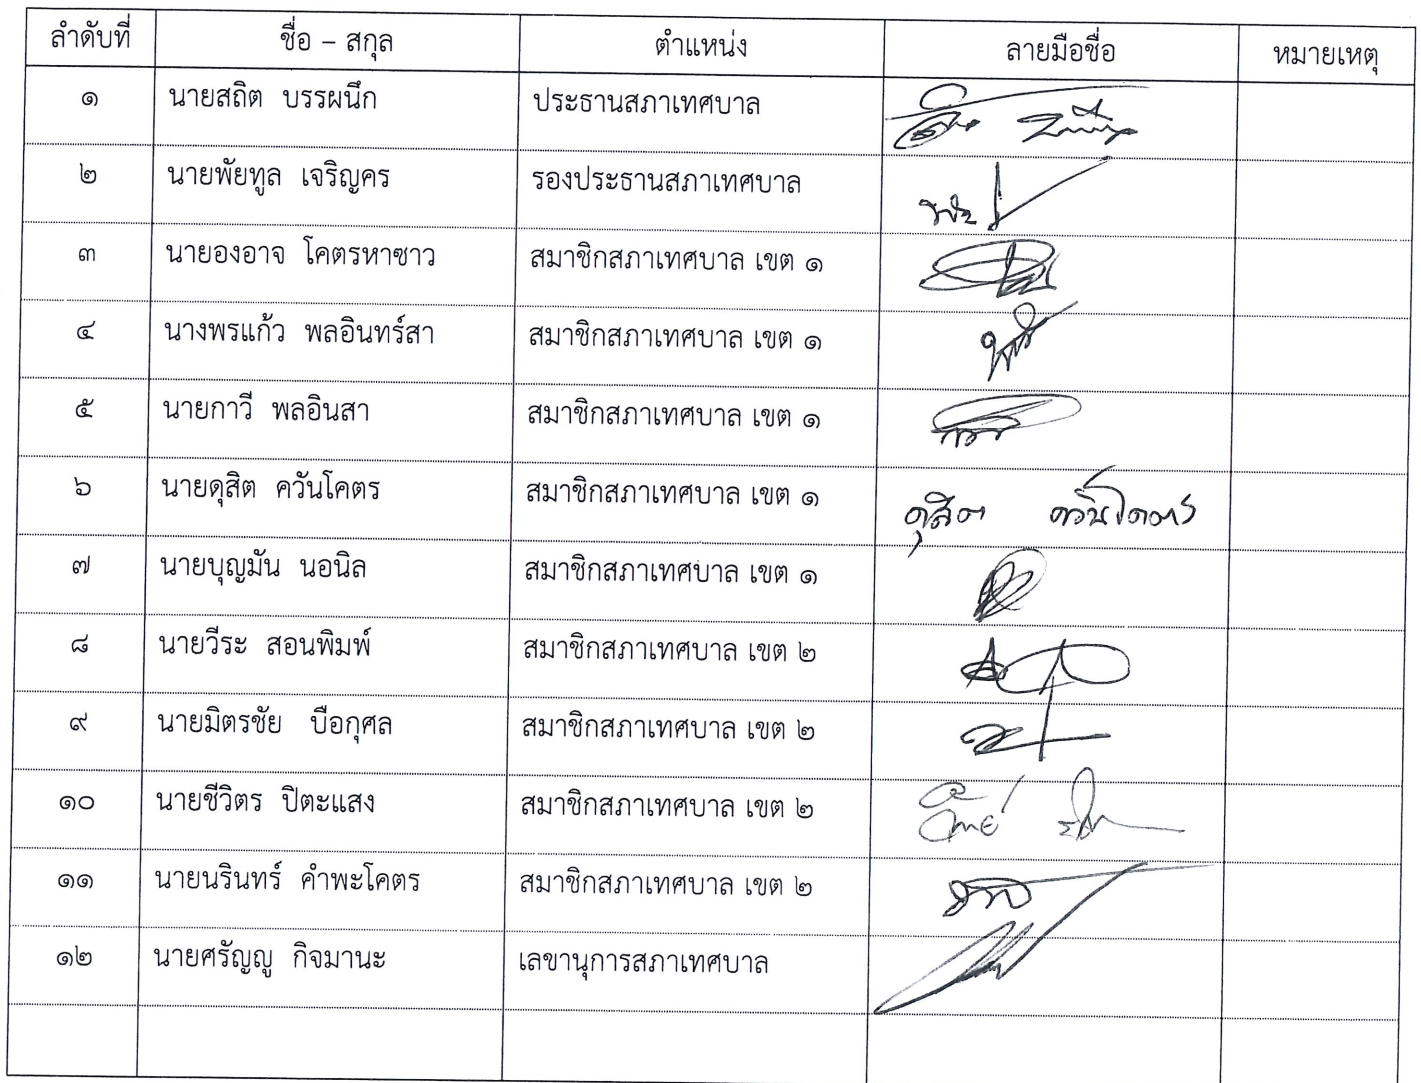 ลำดับที่ ชื่อ – สกุล ตำแหน่ง ลายมือชื่อ หมายเหตุ
๑ นายสถิต บรรผนึก ประธานสภาเทศบาล
๒ นายพัยทูล เจริญคร รองประธานสภาเทศบาล
๓ นายองอาจ โคตรหาซาว สมาชิกสภาเทศบาล เขต ๑
๔ นางพรแก้ว พลอินทร์สา สมาชิกสภาเทศบาล เขต ๑
๕ นายกาวี พลอินสา สมาชิกสภาเทศบาล เขต ๑
๖ นายดุสิต ควันโคตร สมาชิกสภาเทศบาล เขต ๑ ดุสิต ควันโคตร
๗ นายบุญมัน นอนิล สมาชิกสภาเทศบาล เขต ๑
๘ นายวีระ สอนพิมพ์ สมาชิกสภาเทศบาล เขต ๒
๙ นายมิตรชัย บือกุศล สมาชิกสภาเทศบาล เขต ๒
๑๐ นายชีวิตร ปิตะแสง สมาชิกสภาเทศบาล เขต ๒
๑๑ นายนรินทร์ คำพะโคตร สมาชิกสภาเทศบาล เขต ๒
๑๒ นายศรัญญู กิจมานะ เลขานุการสภาเทศบาล